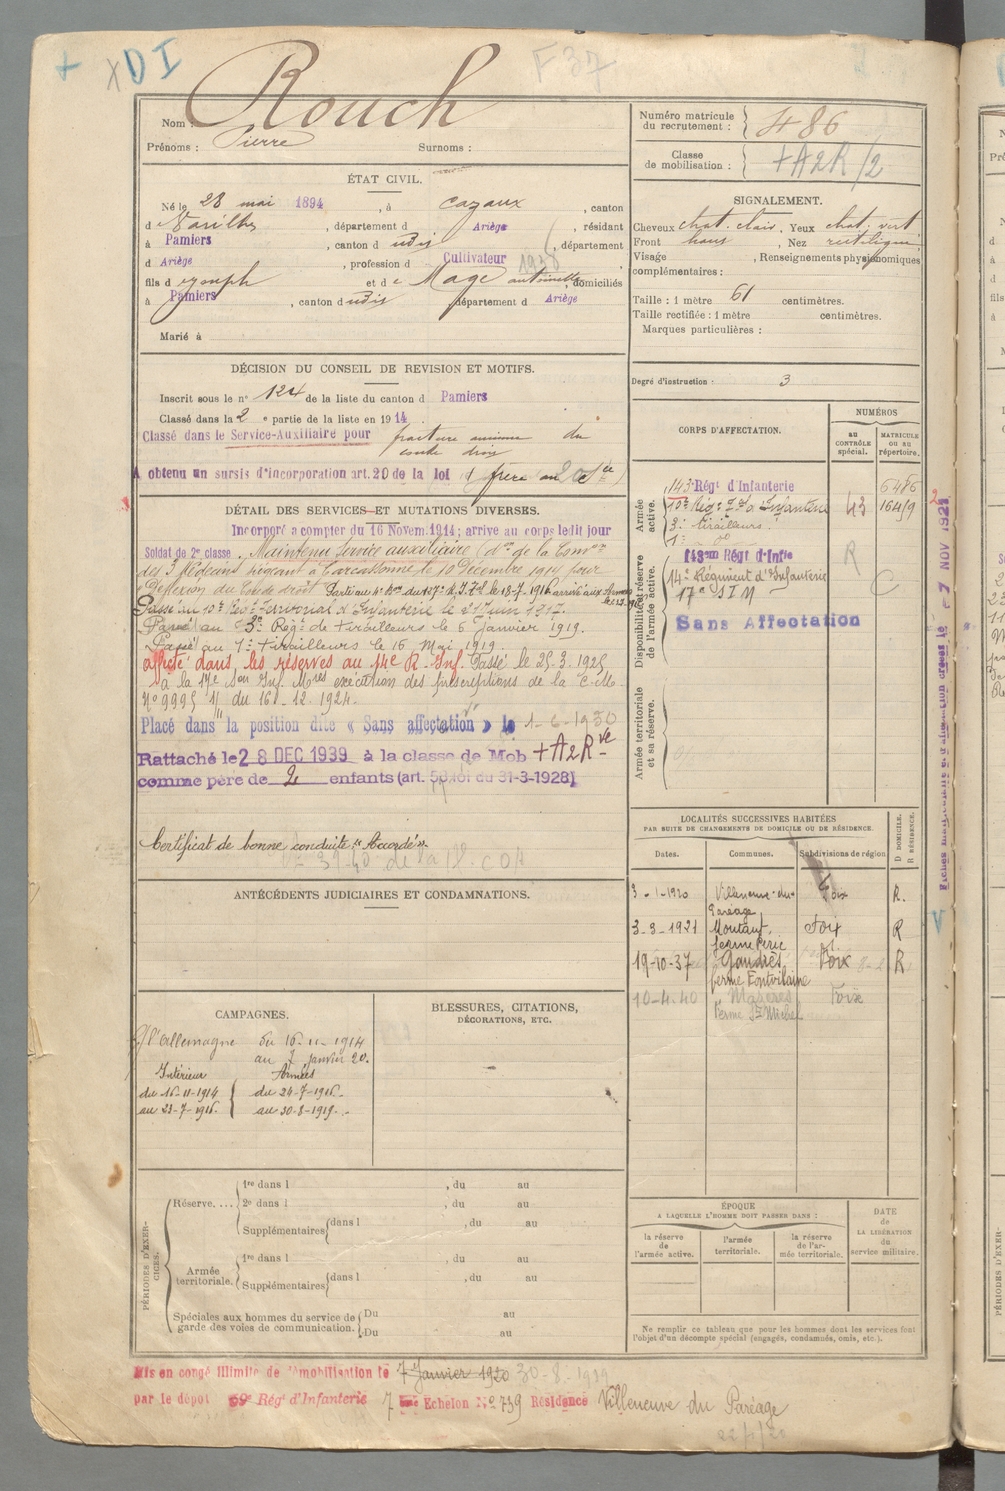 + X D I
F 37
Nom : Rouch
Prénoms : Pierre Surnoms :
ÉTAT CIVIL.
Né le 28 mai 1894, à Cazaux, canton
d Varilhes, département d Ariège, résidant
à Pamiers, canton d udis, département
d Ariège, profession d Cultivateur 1938
fils d Joseph et de Mage antoinette, domiciliés
à Pamiers, canton d udis département d Ariège
Marié à
DÉCISION DU CONSEIL DE REVISION ET MOTIFS.
Inscrit sous le n° 124 de la liste du canton d Pamiers
Classé dans la 2 e partie de la liste en 1914.
Classé dans le Service-Auxiliaire pour fracture ancienne du
coude droit
A obtenu un sursis d'incorporation art. 20 de la loi (frère au
DÉTAIL DES SERVICES ET MUTATIONS DIVERSES.
Incorporé à compter du 16 Novem. 1914; arrivé au corps ledit jour
Soldat de 2e classe. Maintenu Service auxiliaire (don de la Comon
des 3 Médecins siégeant à Carcassonne le 10 Décembre 1914 pour
flexion du coude droit Parti au
Passé au 10e Rég. territorial d'Infanterie le 21 juin 1917.
Passé au 3e Régt de tirailleurs le 6 Janvier 1919.
Passé au 1er tirailleurs le 16 Mai 1919.
Affecté dans les réserves au 14e R. Inf. Passé le 25.3.1925
à la 17e Son Inf. Mres exécution des prescriptions de la C.M.
N° 9995 1/11 du 16-12.1924.
Placé dans la position dite « Sans affectation » le 1-6-1930
Rattaché le 28 DEC 1939 à la classe de Mob + A2Rve
comme père de 2 enfants (art. 58 loi du 31-3-1928)
Certificat de bonne conduite "Accordé".
ANTÉCÉDENTS JUDICIAIRES ET CONDAMNATIONS.
CAMPAGNES.
C/ l'Allemagne du 16-11-1914
au 7 janvier 20.
Intérieur Armées
du 16-11-1914 { du 24-7-1916.
au 23-7-1916. au 30-8-1919.
BLESSURES, CITATIONS,
DÉCORATIONS, ETC.
PÉRIODES D'EXERCICES.
Réserve. ...
1re dans l , du au
2e dans l , du au
Supplémentaires {dans l , du au
Armée
territoriale.
1re dans l , du au
Supplémentaires {dans l , du au
Spéciales aux hommes du service de
garde des voies de communication.
Du au
Du au
Mis en congé illimité de démobilisation le 7 Janvier 1920 30-8-1919
par le dépôt 59e Régt d'Infanterie 7 eme Echelon No 759 Résidence Villeneuve du Paréage
Numéro matricule
du recrutement : 486
Classe
de mobilisation : + A2R/2
SIGNALEMENT.
Cheveux chat. clair, Yeux chat. vert
Front haut, Nez rectiligne
Visage , Renseignements physionomiques
complémentaires :
Taille : 1 mètre 61 centimètres.
Taille rectifiée : 1 mètre centimètres.
Marques particulières :
Degré d'instruction : 3
CORPS D'AFFECTATION.
NUMÉROS
AU
CONTRÔLE
spécial.
MATRICULE
OU AU
répertoire.
Armée
active.
143e Régt d'Infanterie 6486
10e Régt Tal d'Infanterie 43 16419
3e tirailleurs.
1er do
Disponibilité et réserve
de l'armée active.
143em Régt d'Infie R
14e Régiment d'Infanterie
17e S I M
Sans Affectation
Armée territoriale
et sa réserve.
LOCALITÉS SUCCESSIVES HABITÉES
PAR SUITE DE CHANGEMENTS DE DOMICILE OU DE RÉSIDENCE.
Dates. Communes. Subdivisions de région
D DOMICILE.
R RÉSIDENCE.
3-1-1920 Villeneuve-du- Foix R.
Paréage
3-3-1921 Montaut, Foix R
19-10-37 Gaudiès Foix R
ferme Fontvilaine
10-4.40 Mazères Foix
ferme St Michel
ÉPOQUE
A LAQUELLE L'HOMME DOIT PASSER DANS :
la réserve
de
l'armée active.
l'armée
territoriale.
la réserve
de l'ar-
mée territoriale.
DATE
de
LA LIBÉRATION
du
service militaire.
Ne remplir ce tableau que pour les hommes dont les services font
l'objet d'un décompte spécial (engagés, condamnés, omis, etc.).